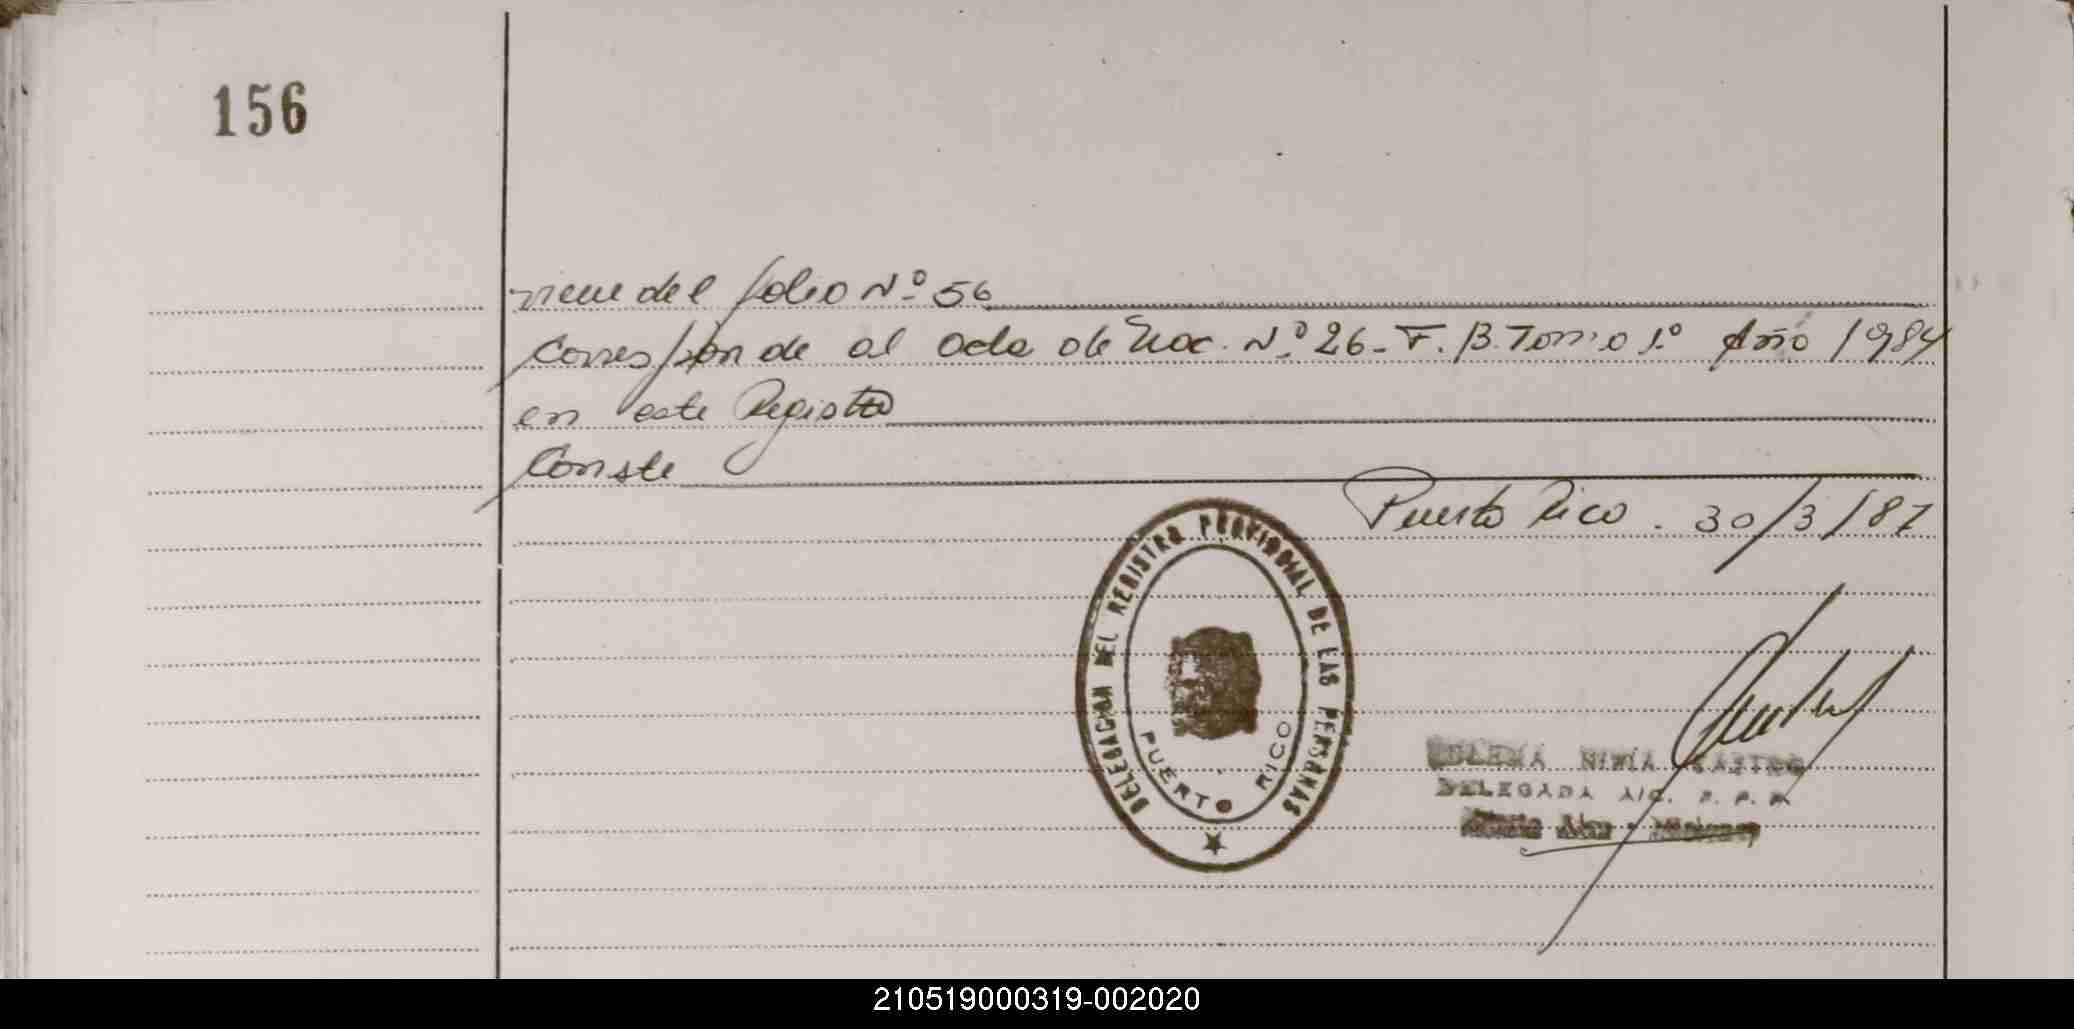 156
viene del folio Nº 56
Corresponde al acta de Nac. Nº 26 - F. 13. Tomo 1º Año 1984
en este Registro
Conste
Puerto Rico. 30/3/87
DELEGACION DEL REGISTRO PROVINCIAL DE LAS PERSONAS
PUERTO RICO
DELEGADA A/C. R. P. P.
210519000319-002020